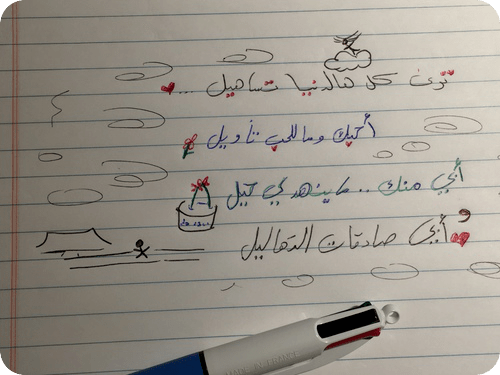 ترى كل هالدنيا تساهيل ...
أحبك وما للحب تأويل
أبي منك .. ما ينهدي كيل
و أبي صادقات التهاليل